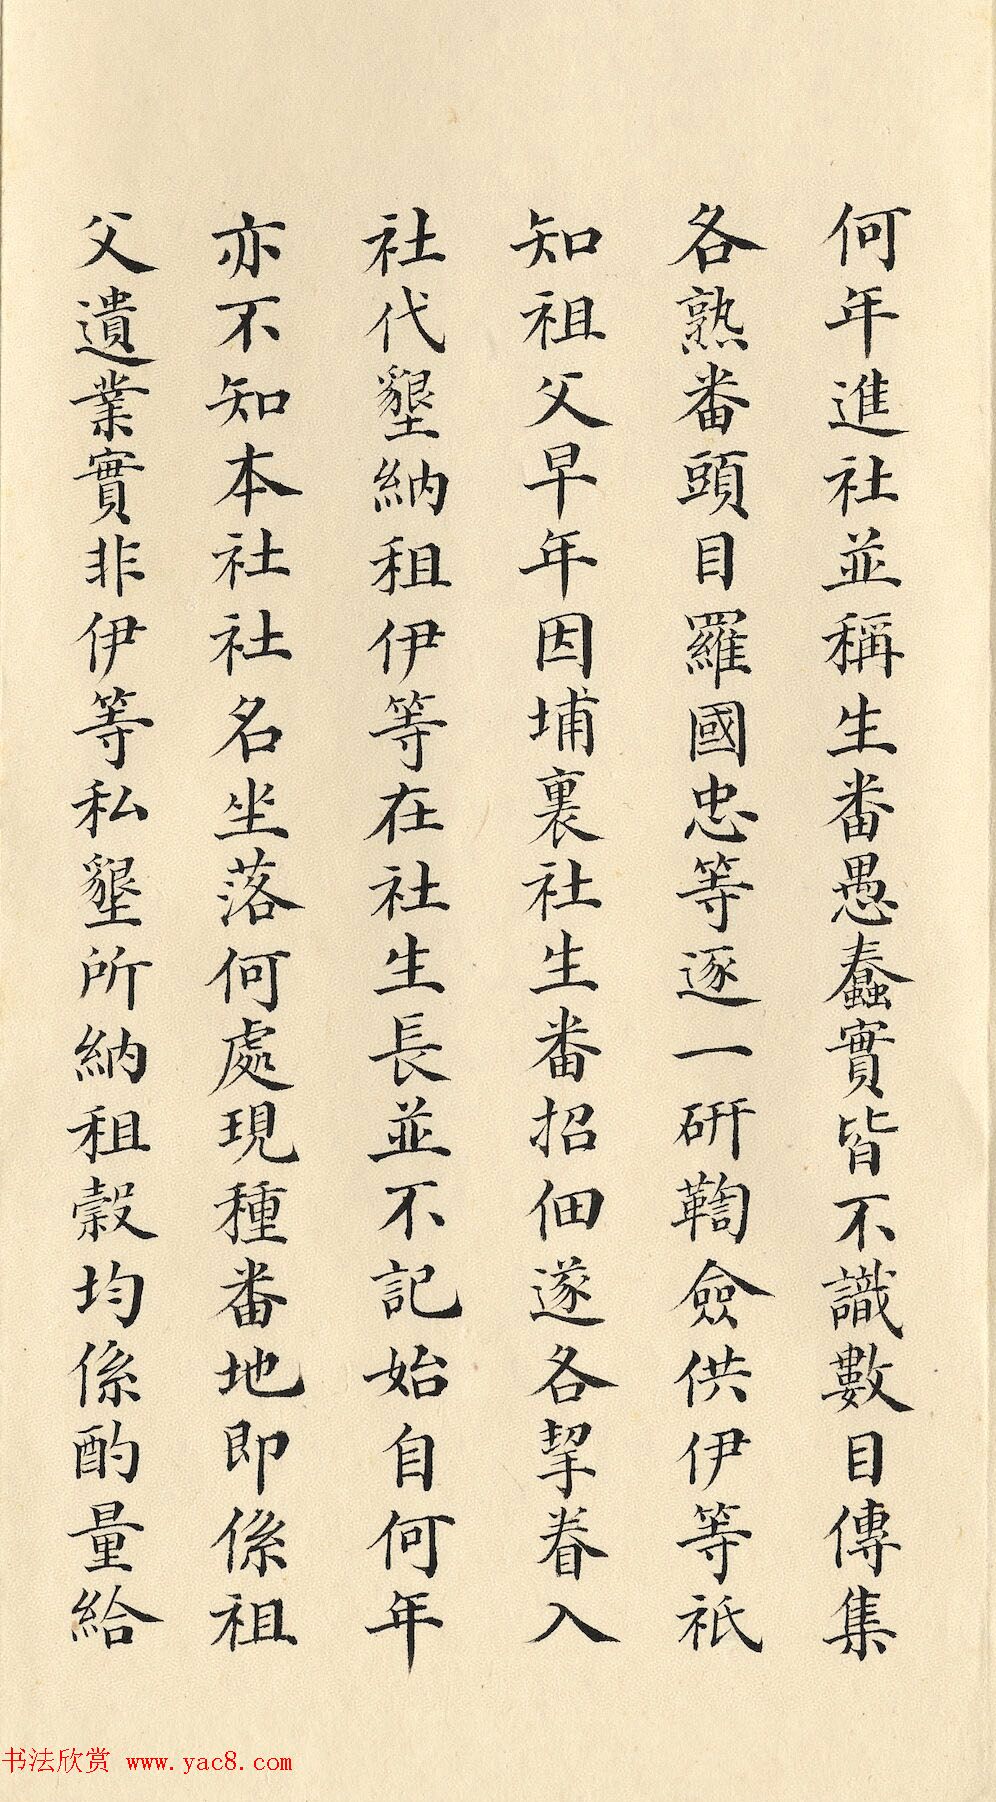 何年進社並稱生番愚蠢實皆不識數目傳集
各熟番頭目羅國忠等逐一研鞫僉供伊等祇
知祖父早年因埔裏社生番招佃遂各挈眷入
社代墾納租伊等在社生長並不記始自何年
亦不知本社社名坐落何處現種番地即係祖
父遺業實非伊等私墾所納租穀均係酌量給
书法欣赏 www.yac8.com